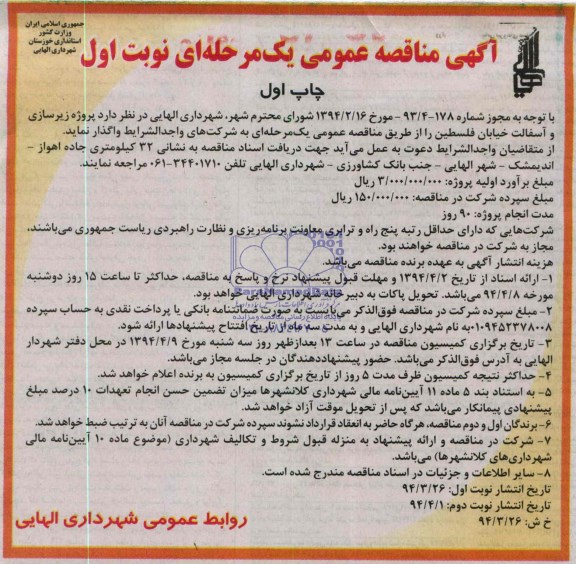 جمهوری اسلامی ایران
وزارت کشور
استانداری خوزستان
شهرداری الهایی
آگهی مناقصه عمومی یک‌مرحله‌ای نوبت اول
چاپ اول
با توجه به مجوز شماره ۱۷۸-۹۳/۴ مورخ ۱۳۹۴/۲/۱۶ شورای محترم شهر، شهرداری الهایی در نظر دارد پروژه زیرسازی
و آسفالت خیابان فلسطین را از طریق مناقصه عمومی یک‌مرحله‌ای به شرکت‌های واجدالشرایط واگذار نماید.
از متقاضیان واجدالشرایط دعوت به عمل می‌آید جهت دریافت اسناد مناقصه به نشانی ۳۲ کیلومتری جاده اهواز -
اندیمشک - شهر الهایی - جنب بانک کشاورزی - شهرداری الهایی تلفن ۳۴۴۰۱۷۱۰-۰۶۱ مراجعه نمایند.
مبلغ برآورد اولیه پروژه: ۳/۰۰۰/۰۰۰/۰۰۰ ریال
مبلغ سپرده شرکت در مناقصه: ۱۵۰/۰۰۰/۰۰۰ ریال
مدت انجام پروژه: ۹۰ روز
شرکت‌هایی که دارای حداقل رتبه پنج راه و ترابری معاونت برنامه‌ریزی و نظارت راهبردی ریاست جمهوری می‌باشند،
مجاز به شرکت در مناقصه خواهند بود.
هزینه انتشار آگهی به عهده برنده مناقصه می‌باشد.
۱- ارائه اسناد از تاریخ ۱۳۹۴/۴/۲ و مهلت قبول پیشنهاد نرخ و پاسخ به مناقصه، حداکثر تا ساعت ۱۵ روز دوشنبه
مورخه ۹۴/۴/۸ می‌باشد. تحویل پاکات به دبیرخانه شهرداری الهایی خواهد بود.
۲- مبلغ سپرده شرکت در مناقصه فوق‌الذکر می‌بایست به صورت ضمانتنامه بانکی یا پرداخت نقدی به حساب سپرده
۰۱۰۹۴۵۲۳۷۸۰۰۸ به نام شهرداری الهایی و به مدت سه ماه از تاریخ افتتاح پیشنهادها ارائه شود.
۳- تاریخ برگزاری کمیسیون مناقصه در ساعت ۱۳ بعدازظهر روز سه شنبه مورخ ۱۳۹۴/۴/۹ در محل دفتر شهردار
الهایی به آدرس فوق‌الذکر می‌باشد. حضور پیشنهاددهندگان در جلسه مجاز می‌باشد.
۴- حداکثر نتیجه کمیسیون ظرف مدت ۵ روز از تاریخ برگزاری کمیسیون به برنده اعلام خواهد شد.
۵- به استناد بند ۵ ماده ۱۱ آیین‌نامه مالی شهرداری کلانشهرها میزان تضمین حسن انجام تعهدات ۱۰ درصد مبلغ
پیشنهادی پیمانکار می‌باشد که پس از تحویل موقت آزاد خواهد شد.
۶- برندگان اول و دوم مناقصه، هرگاه حاضر به انعقاد قرارداد نشوند سپرده شرکت در مناقصه آنان به ترتیب ضبط خواهد شد.
۷- شرکت در مناقصه و ارائه پیشنهاد به منزله قبول شروط و تکالیف شهرداری (موضوع ماده ۱۰ آیین‌نامه مالی
شهرداری‌های کلانشهرها) می‌باشد.
۸- سایر اطلاعات و جزئیات در اسناد مناقصه مندرج شده است.
تاریخ انتشار نوبت اول: ۹۴/۳/۲۶
تاریخ انتشار نوبت دوم: ۹۴/۴/۱
خ ش: ۹۴/۳/۲۶
روابط عمومی شهرداری الهایی